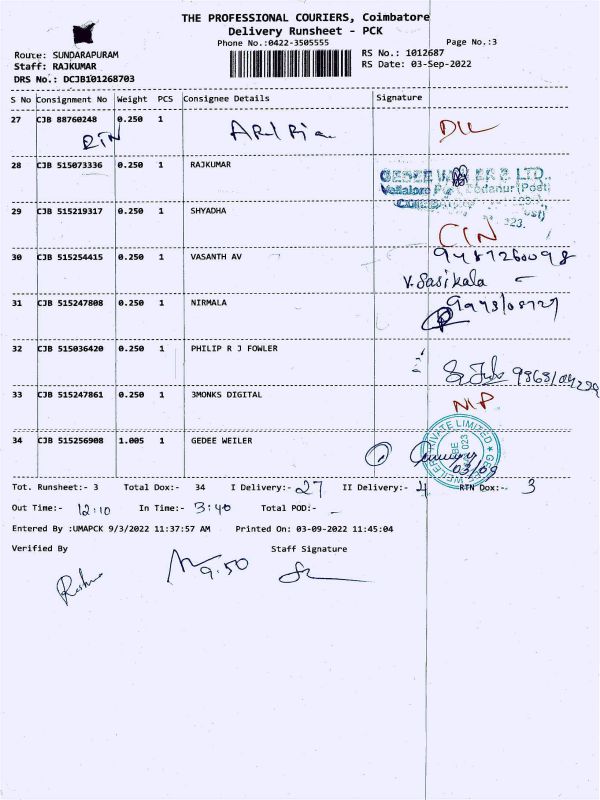 THE PROFESSIONAL COURIERS, Coimbatore
Delivery Runsheet - PCK
Phone No.:0422-3505555
Page No.:3
Route: SUNDARAPURAM
RS No.: 1012687
Staff: RAJKUMAR
RS Date: 03-Sep-2022
DRS No.: DCJB101268703
S No Consignment No Weight PCS Consignee Details Signature
27 CJB 88760248 0.250 1
RTN
28 CJB 515073336 0.250 1 RAJKUMAR
GEDEE LTD.,
Vellalore (Post)
29 CJB 515219317 0.250 1 SHYADHA
30 CJB 515254415 0.250 1 VASANTH AV
V. Sasikala
31 CJB 515247808 0.250 1 NIRMALA
32 CJB 515036420 0.250 1 PHILIP R J FOWLER
33 CJB 515247861 0.250 1 3MONKS DIGITAL
34 CJB 515256908 1.005 1 GEDEE WEILER
GEDEE WEILER PRIVATE LIMITED
03/09
Tot. Runsheet:- 3 Total Dox:- 34 I Delivery:- 27 II Delivery:- 4 RTN Dox:- 3
Out Time:- 12:10 In Time:- 3:40 Total POD:- -
Entered By :UMAPCK 9/3/2022 11:37:57 AM Printed On: 03-09-2022 11:45:04
Verified By Staff Signature
9.50